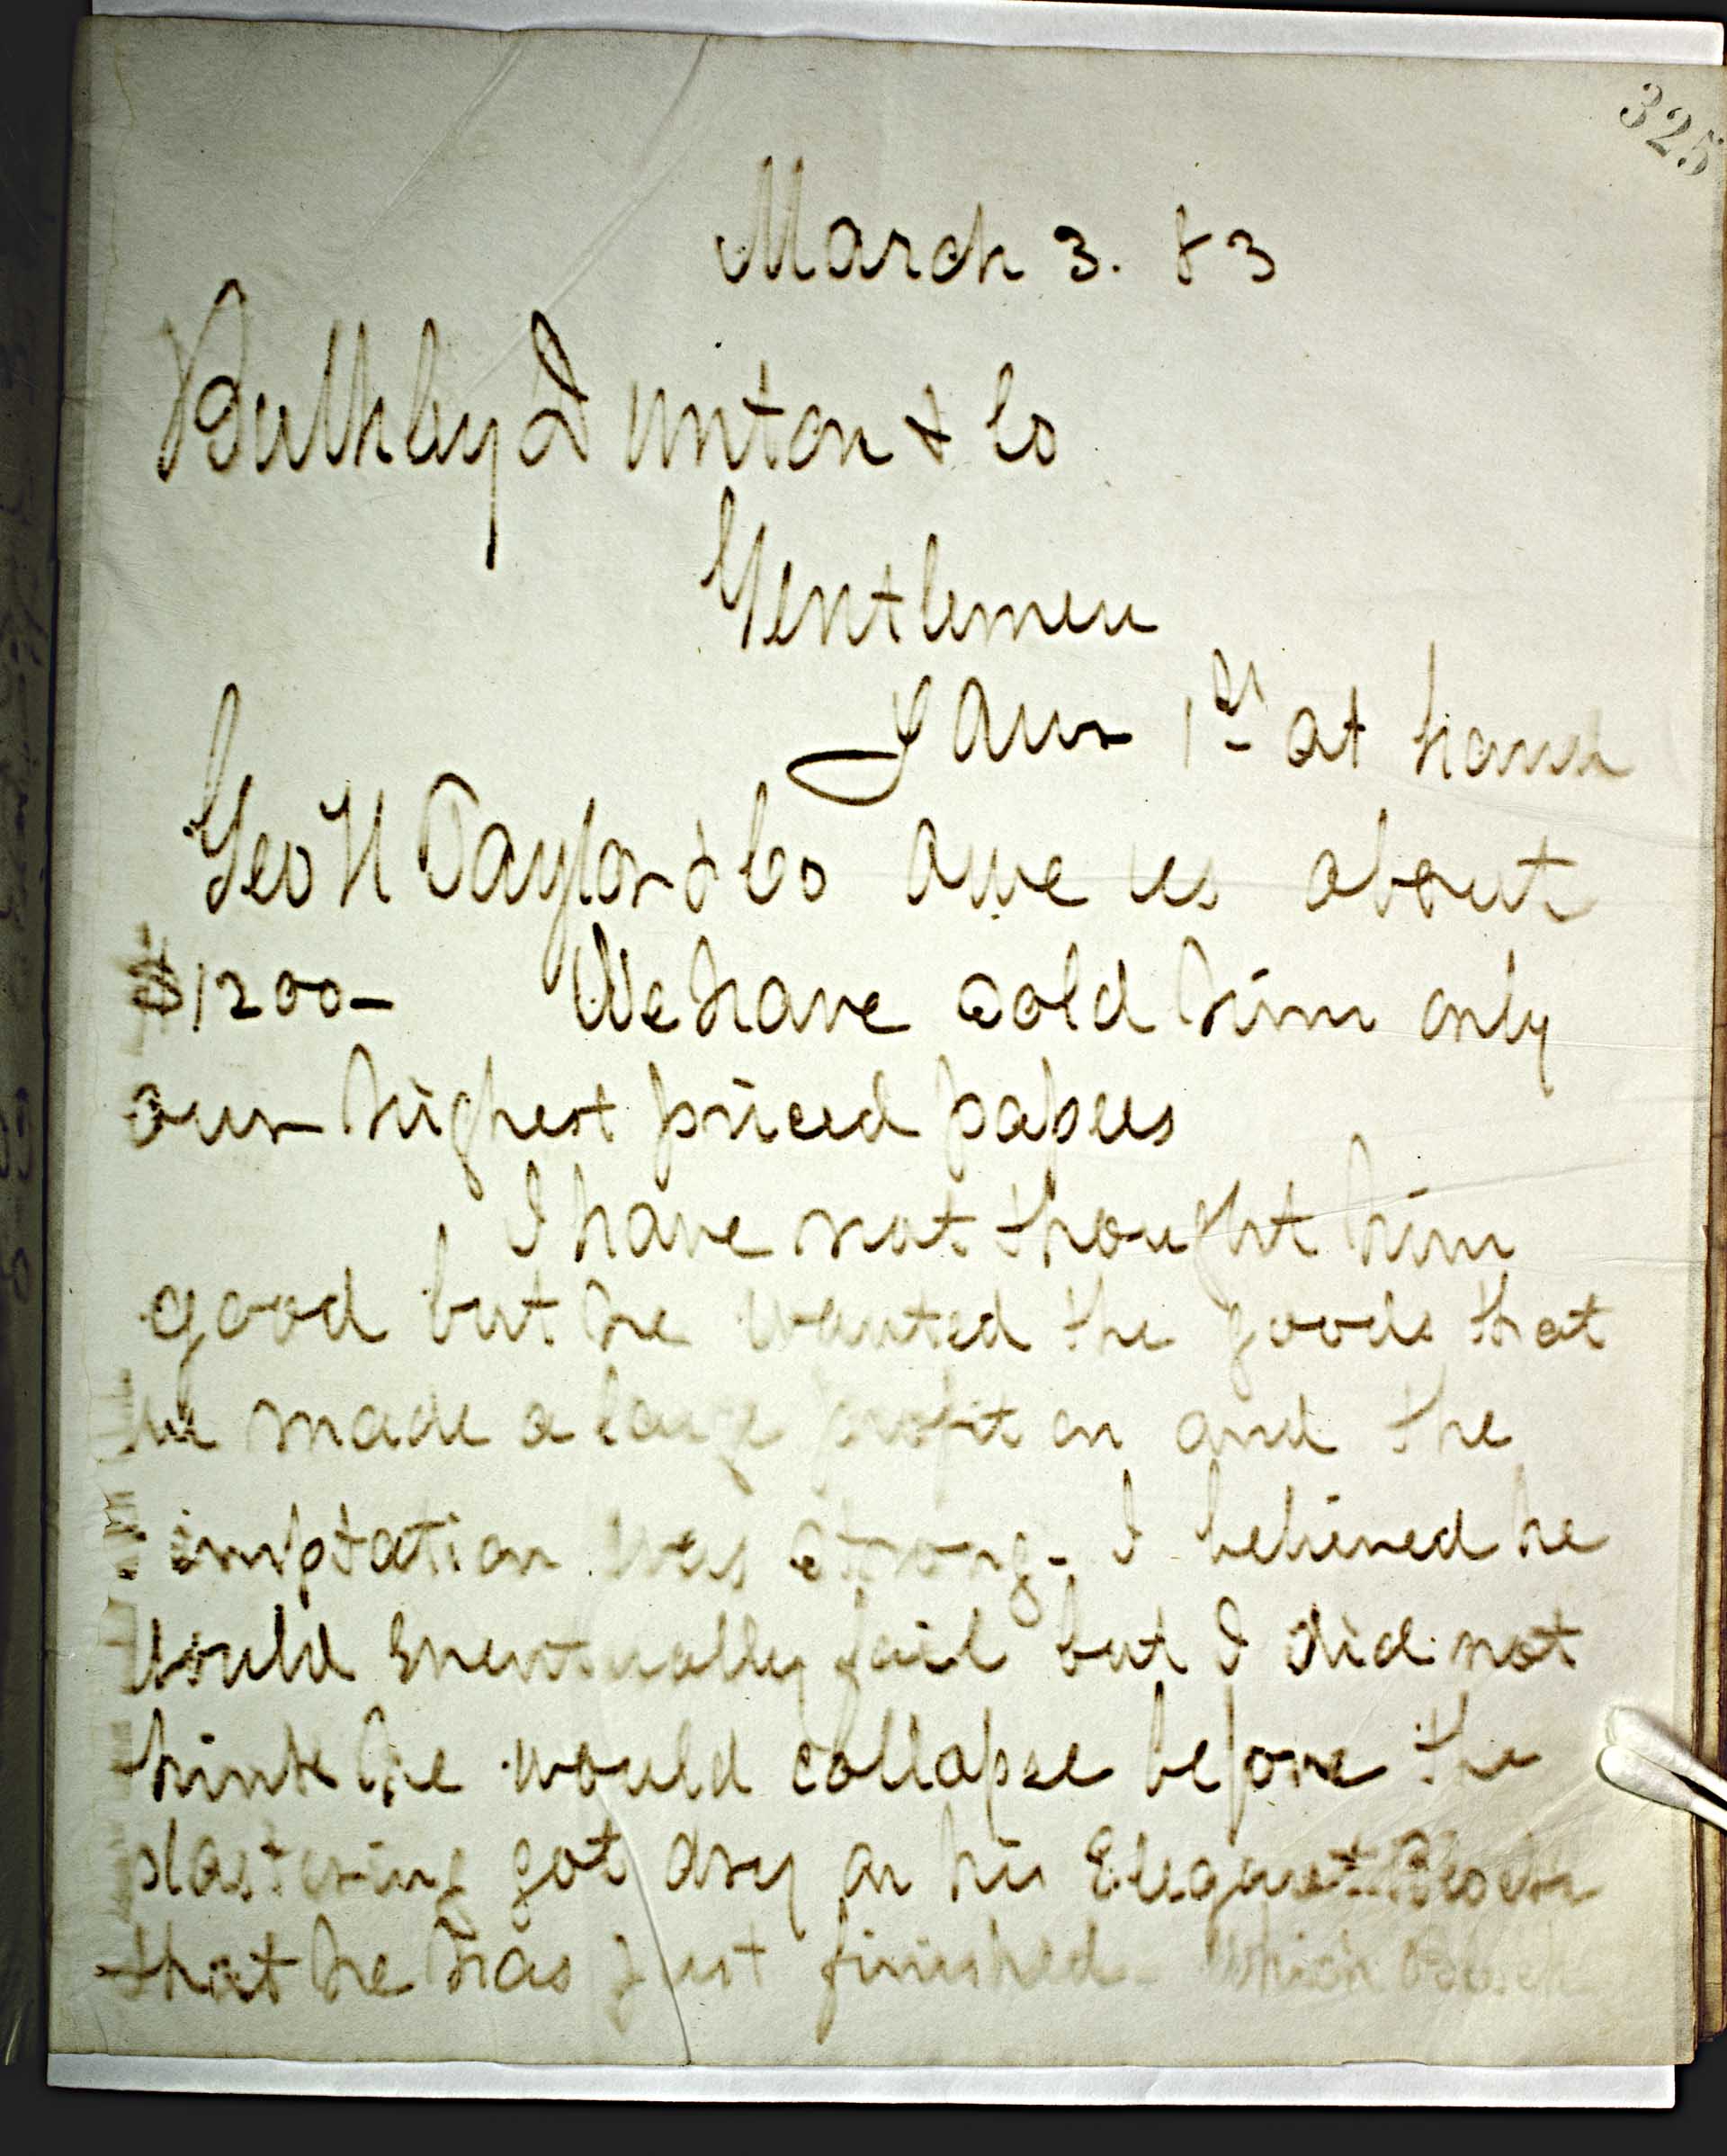 325
March 3. 83
Bulkley Dunton & Co
Gentlemen
Favr 1st at hand
Geo H Taylor & Co owe us about
$1200- We have sold him only
our highest priced papers
I have not thought him
good but he wanted the goods that
we made a large profit on and the
temptation was strong- I believed he
would eventually fail but I did not
think he would collapse before the
plastering got dry on his Elegant Block
that he has just finished- Which Block